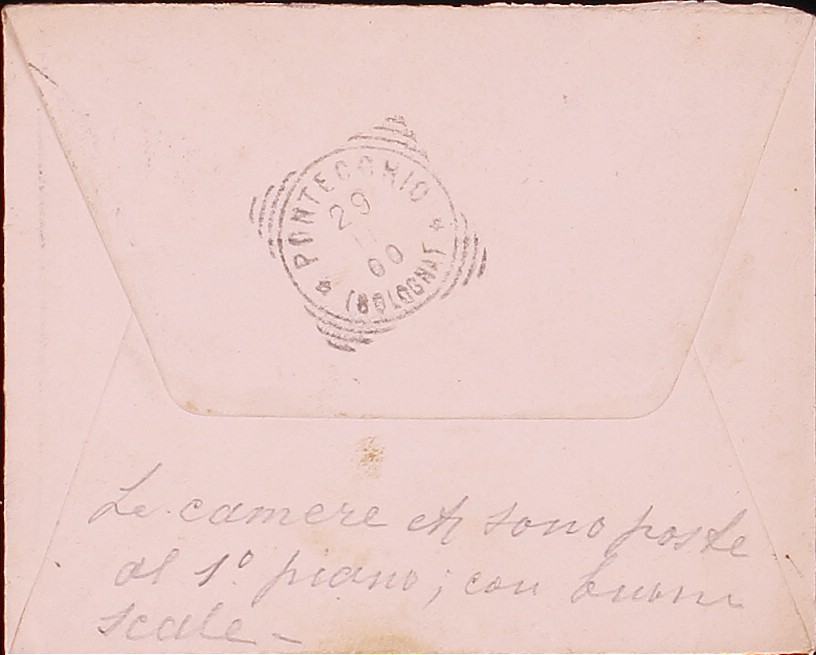 PONTECCHIO
29
00
(BOLOGNA)
Le camere sono poste
al 1º piano; con buone
scale -